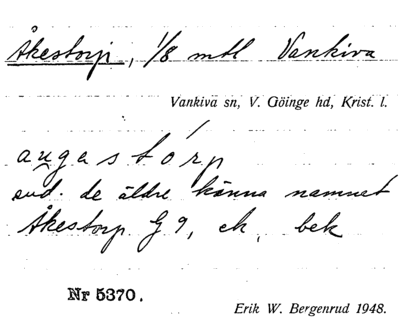 Åkestorp, 1/8 mtl Vankiva
Vankiva sn, V. Göinge hd, Krist. l.
augastórp
end. de äldre känna namnet
Åkestorp G 9, ek, bek
Nr 5370.
Erik W. Bergenrud 1948.